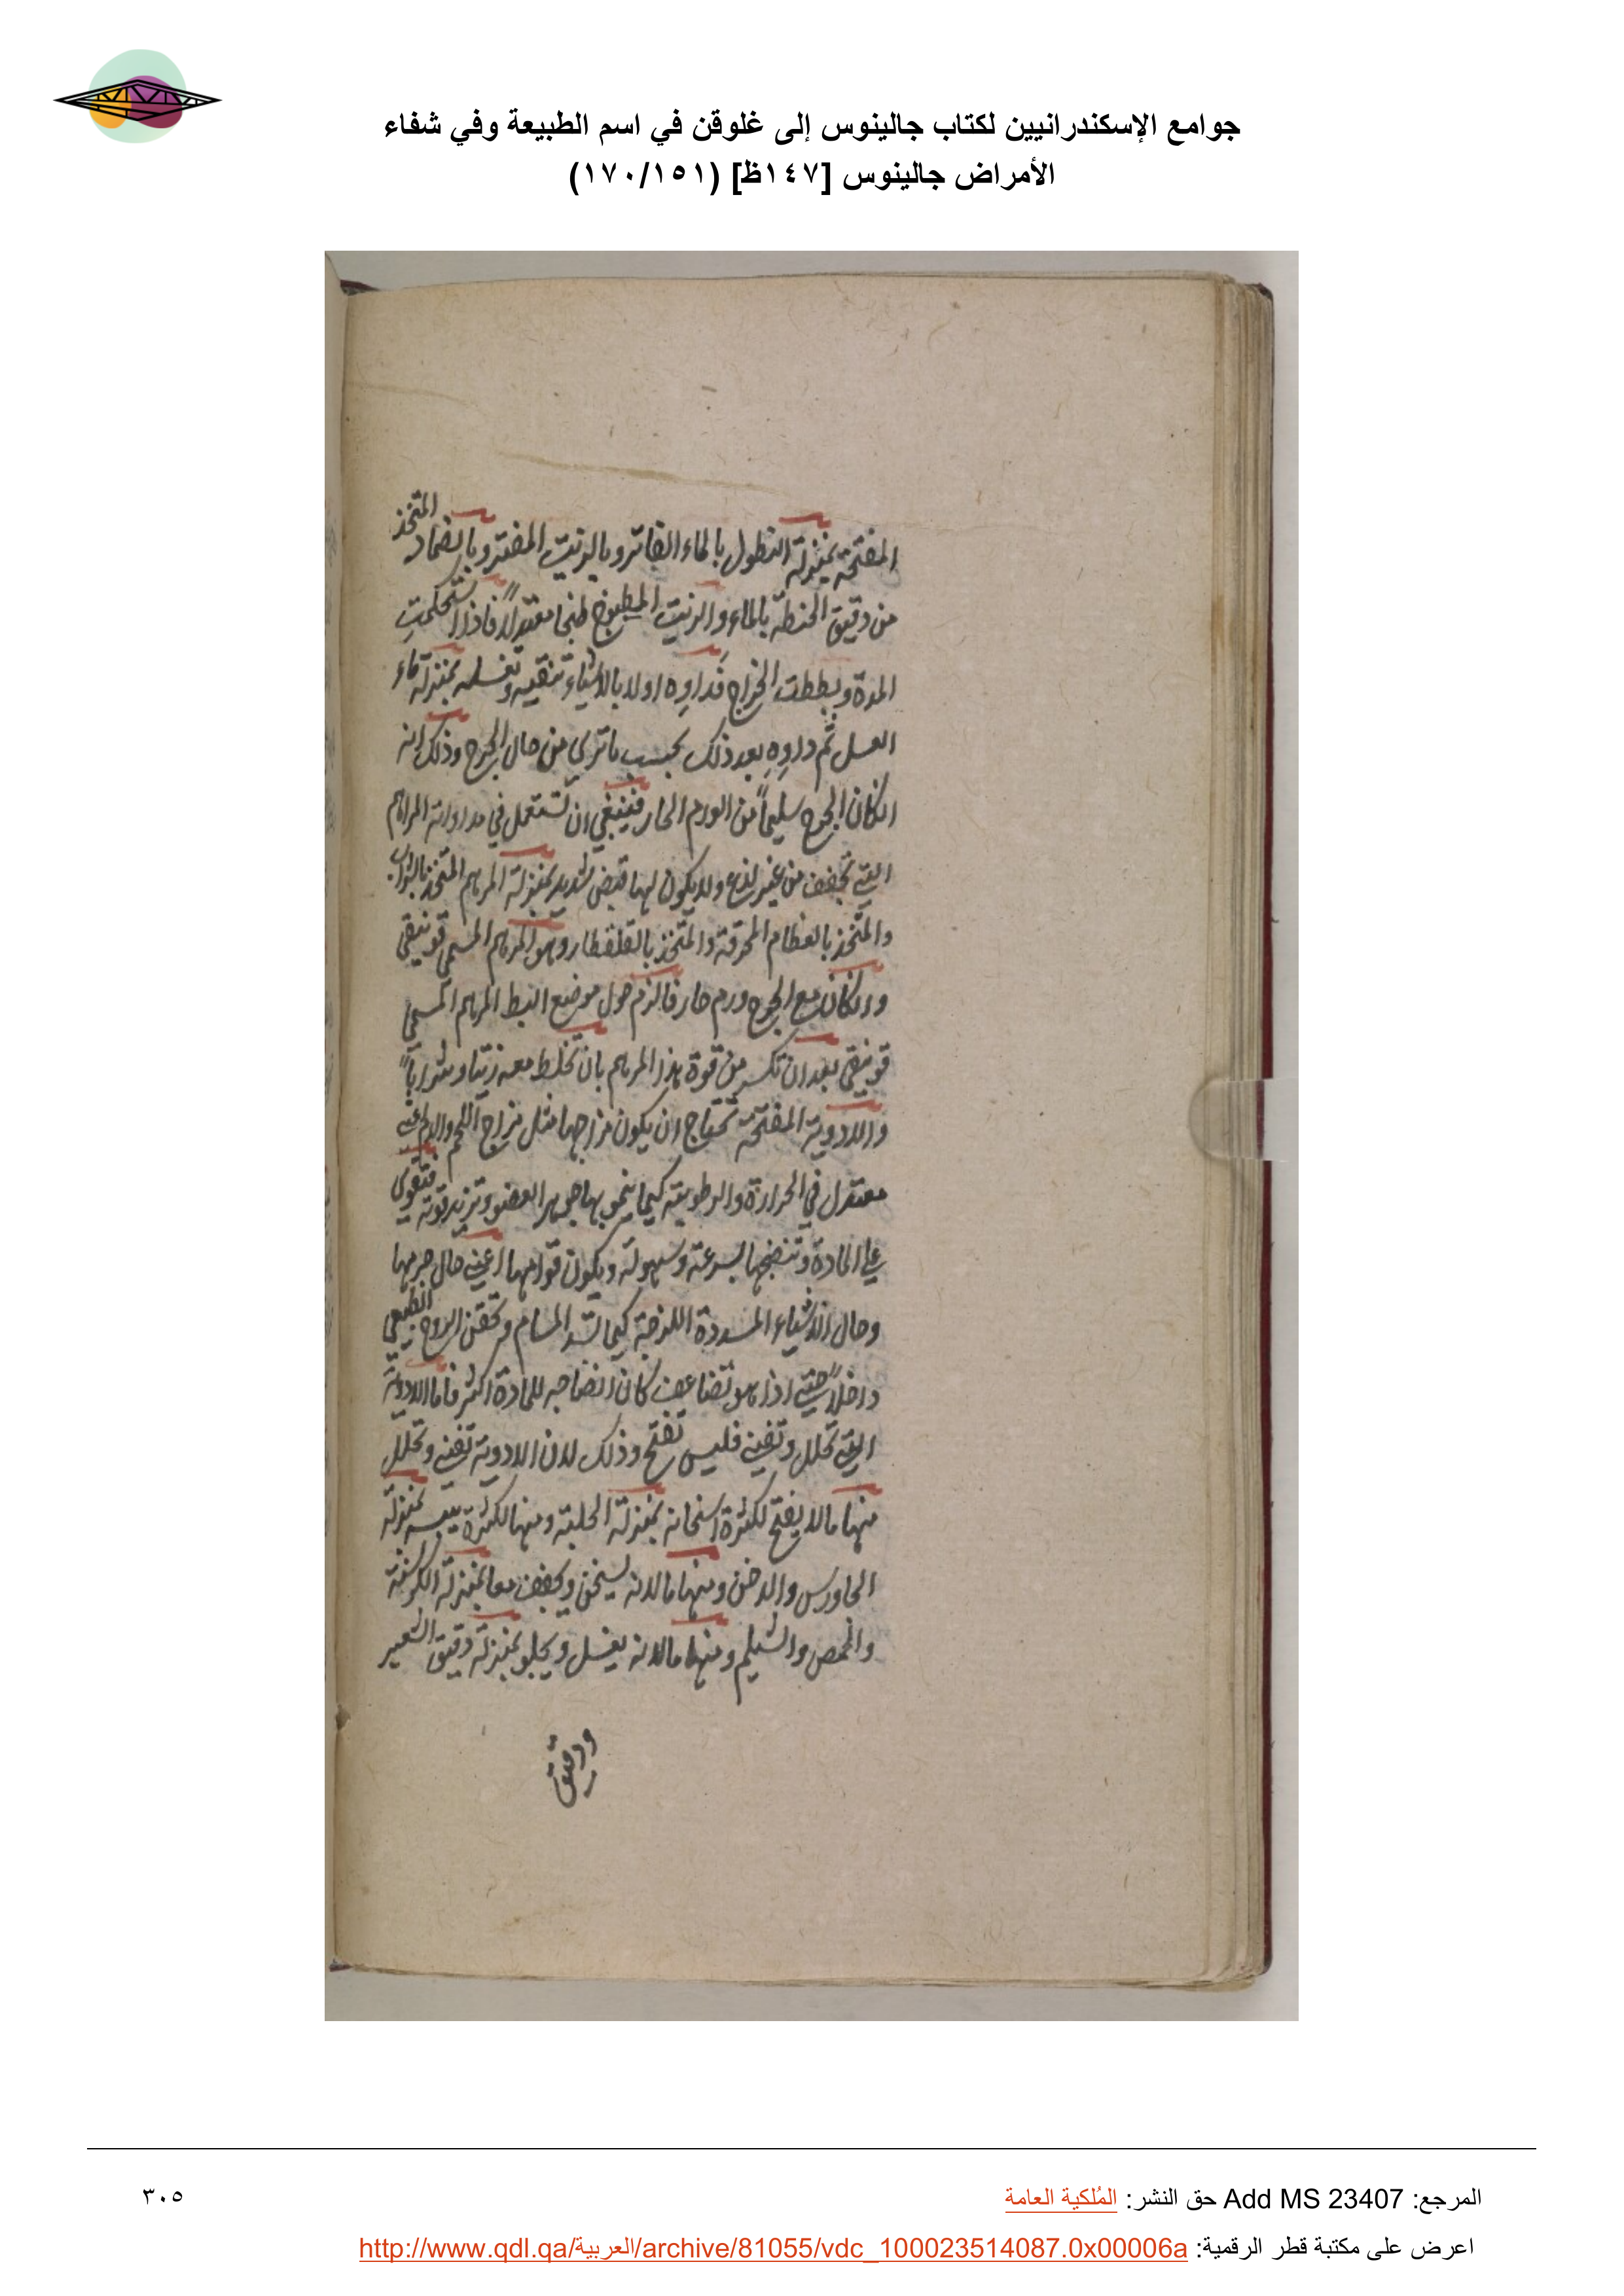 جوامع الإسكندرانيين لكتاب جالينوس إلى غلوقن في اسم الطبيعة وفي شفاء
الأمراض جالينوس [١٤٧ظ] (١٧٠/١٥١)
المفتحة بمنزلة النطول بالماء الفاتر وبالزيت المفتر وبالضماد المتخذ
من دقيق الحنطة بالماء والزيت المطبوخ طبخا معتدلاً فاذا استحكمت
المدة وبططت الخراج فداوه اولا بالاشياء تنقيه وتغسله بمنزلة ماء
العسل ثم داوه بعد ذلك بحسب ما ترى من حال الجرح وذلك انه
ان كان الجرح سليماً من الورم الحار فينبغي ان تستعمل في مداواته المراهم
التي تجفف من غير لذع ولا يكون لها قبض شديد بمنزلة المرهم المتخذ
والمتخذ بالعظام المحرقة والمتخذ بالقلقطار وهو المرهم المسمى فونيقى
وان كان مع الجرح ورم حار فالزم حول موضع البط المرهم المسمى
فونيقى بعد ان تكسر من قوة هذا المرهم بان تخلط معه زيتا وشراباً
والادوية المفتحة تحتاج ان يكون مزاجها مثل مزاج اللحم والدم اعني
معتدل في الحرارة والرطوبة كيما ينمو بها جوهر العضو وتزيد قوته فتقوى
على المادة وتنضجها بسرعة وسهولة ويكون قوامها اعني حال جرمها
وحال الاشياء المسددة اللزجة كيما تسد المسام وتحقن الروح الطبيعي
داخلاً حتى اذا هو تضاعف كان انضاجه للمادة اكثر فاما الادوية
التي تحلل وتفنى فليس تفتح وذلك لان الادوية تفنى وتحلل
منها ما لا يفتح لكثرة اسخانه بمنزلة الحلبة ومنها لكثرة يبسه بمنزلة
الجاورس والدخن ومنها ما لانه يسخن ويجفف معا بمنزلة الكرسنة
والحمص والشيلم ومنها ما لانه يغسل ويجلو بمنزلة دقيق الشعير
ودقيق
المرجع: Add MS 23407 حق النشر: المُلكية العامة
٣٠٥
اعرض على مكتبة قطر الرقمية: http://www.qdl.qa/العربية/archive/81055/vdc_100023514087.0x00006a